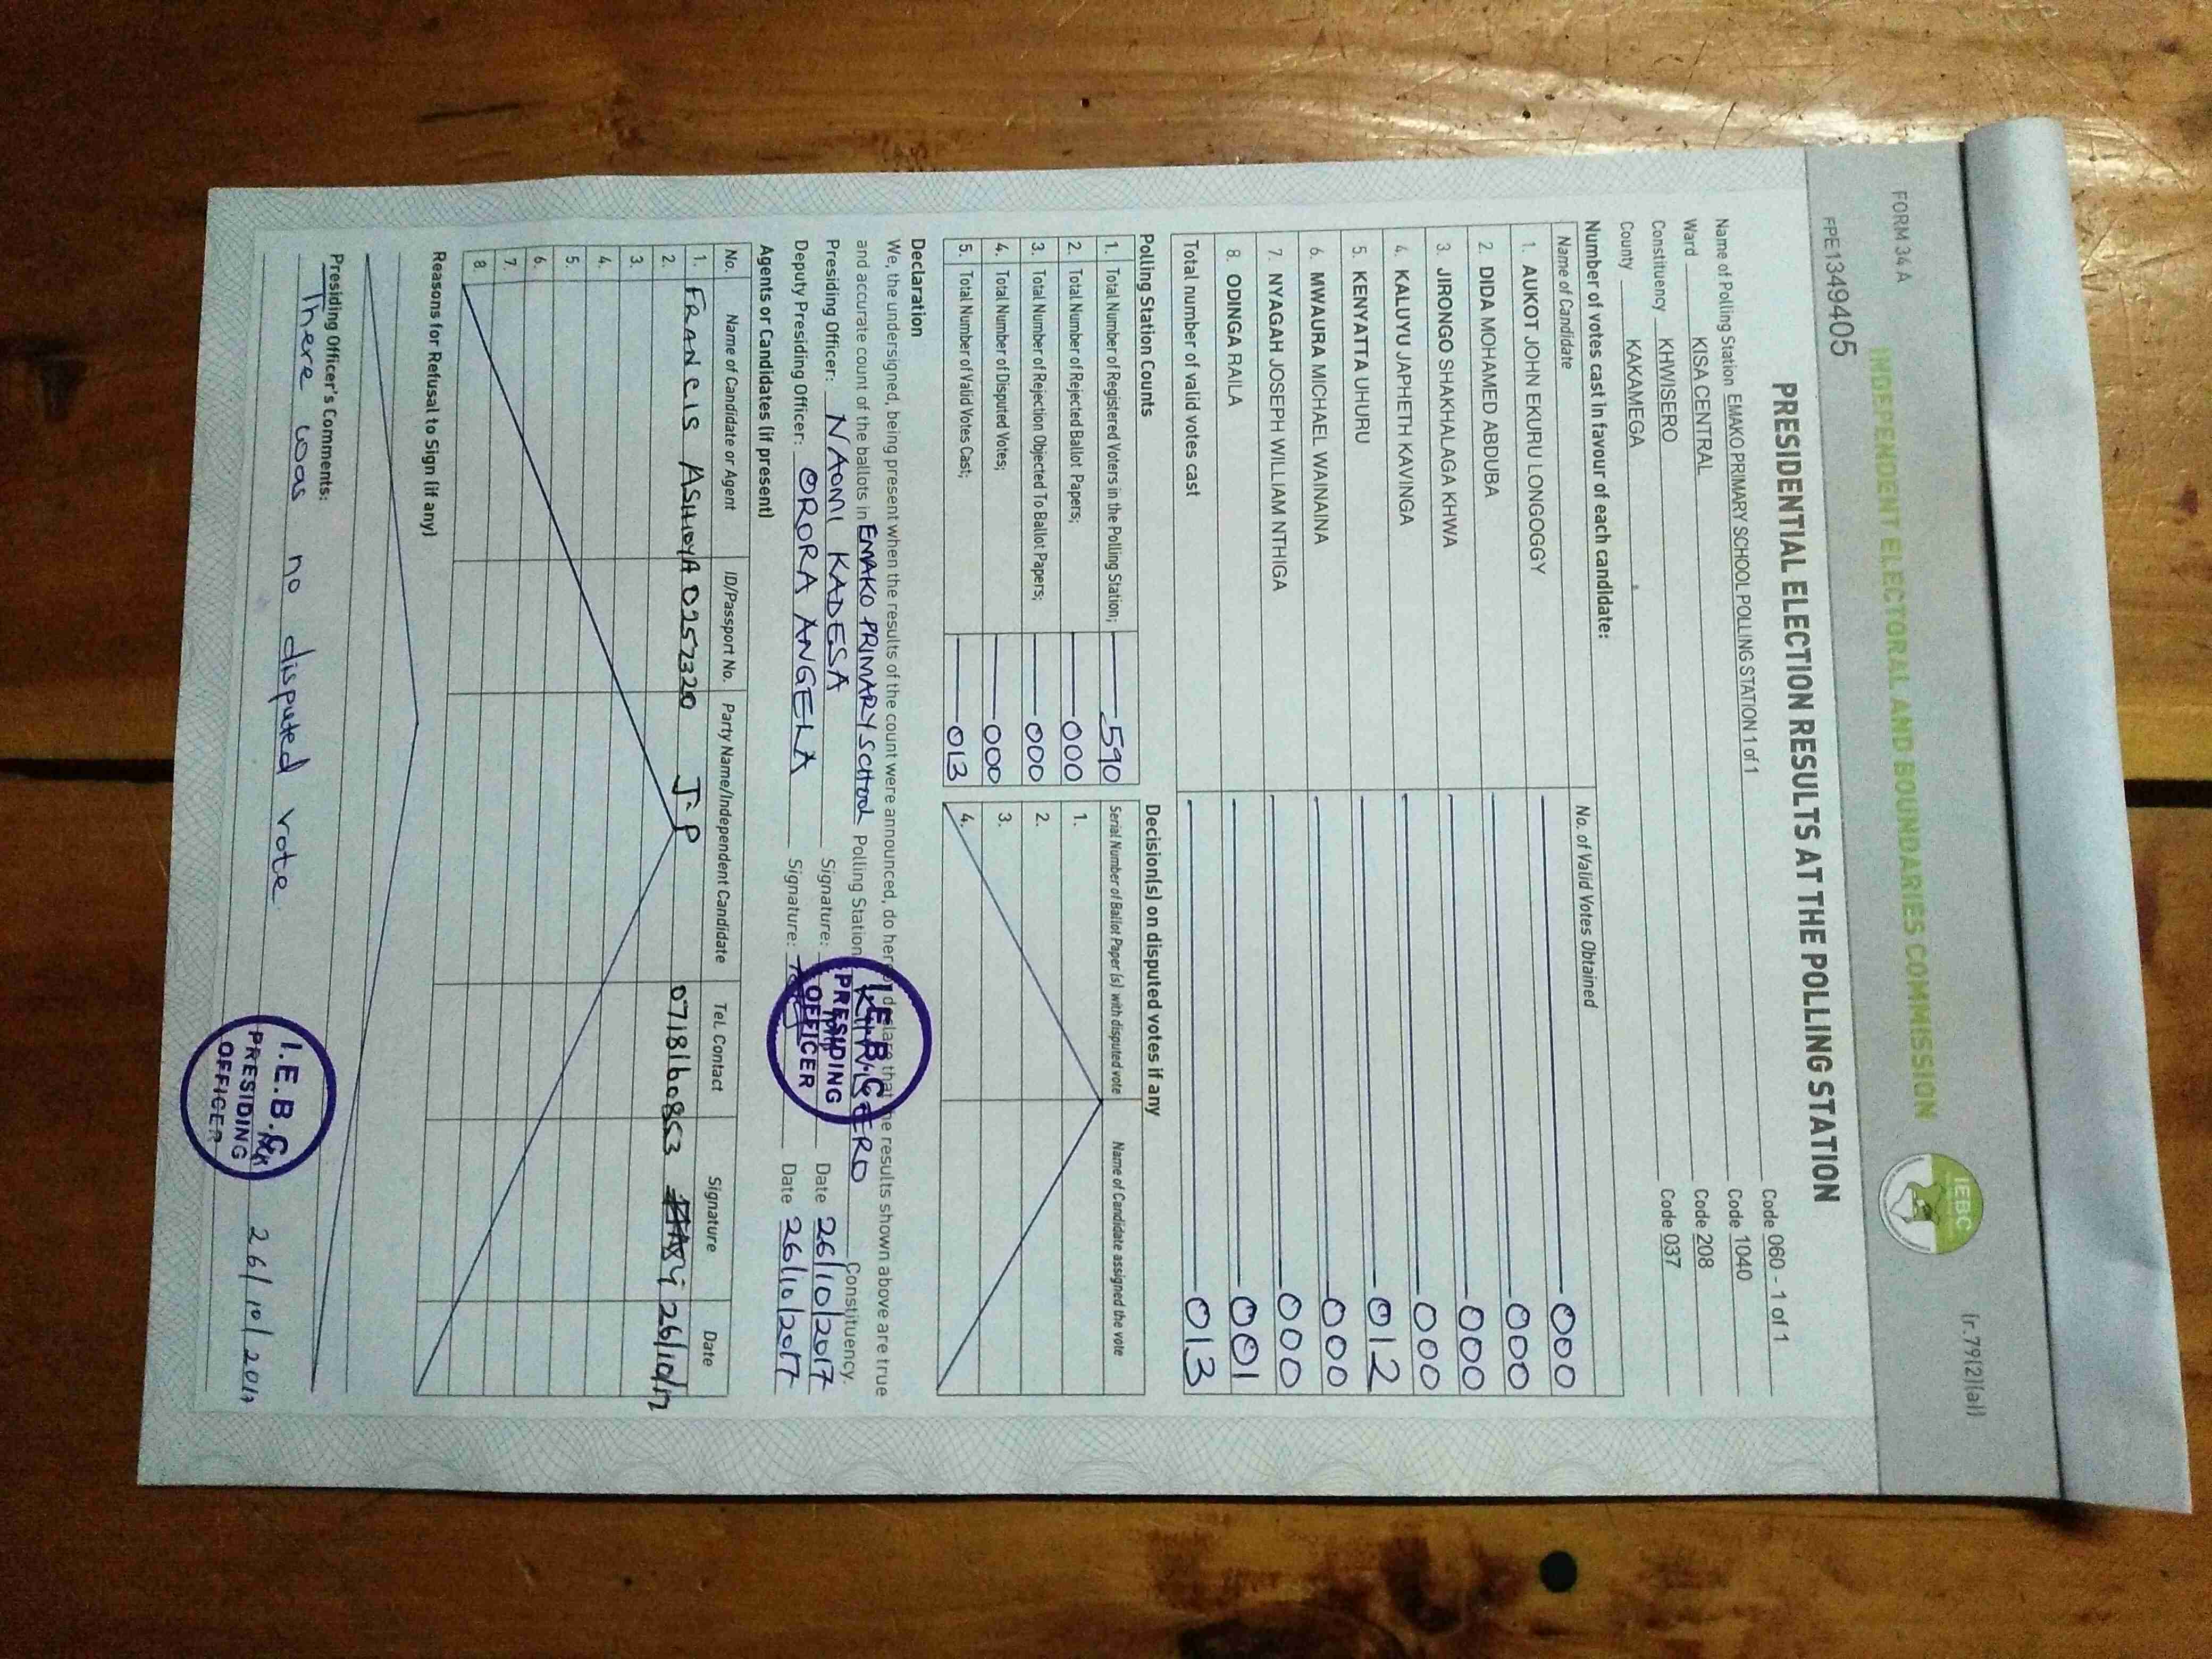 FORM 34 A
(r.79(2)(a))
INDEPENDENT ELECTORAL AND BOUNDARIES COMMISSION
IEBC
PE1349405
PRESIDENTIAL ELECTION RESULTS AT THE POLLING STATION
Name of Polling Station EMAKO PRIMARY SCHOOL POLLING STATION 1 of 1 Code 060 - 1 of 1
Ward KISA CENTRAL Code 1040
Constituency KHWISERO Code 208
County KAKAMEGA Code 037
Number of votes cast in favour of each candidate:
Name of Candidate No. of Valid Votes Obtained
1. AUKOT JOHN EKURU LONGOGGY 000
2. DIDA MOHAMED ABDUBA 000
3. JIRONGO SHAKHALAGA KHWA 000
4. KALUYU JAPHETH KAVINGA 000
5. KENYATTA UHURU 012
6. MWAURA MICHAEL WAINAINA 000
7. NYAGAH JOSEPH WILLIAM NTHIGA 000
8. ODINGA RAILA 001
Total number of valid votes cast 013
Polling Station Counts
1. Total Number of Registered Voters in the Polling Station; 590
2. Total Number of Rejected Ballot Papers; 000
3. Total Number of Rejection Objected To Ballot Papers; 000
4. Total Number of Disputed Votes; 000
5. Total Number of Valid Votes Cast; 013
Decision(s) on disputed votes if any
Serial Number of Ballot Paper (s) with disputed vote Name of Candidate assigned the vote
1.
2.
3.
4.
Declaration
We, the undersigned, being present when the results of the count were announced, do hereby declare that the results shown above are true
and accurate count of the ballots in EMAKO PRIMARY SCHOOL Polling Station KHWISERO Constituency.
Presiding Officer: NAOMI KADESA Signature: Date 26/10/2017
Deputy Presiding Officer: ORORA ANGELA Signature: Date 26/10/2017
I.E.B.C
PRESIDING
OFFICER
Agents or Candidates (if present)
No. Name of Candidate or Agent ID/Passport No. Party Name/Independent Candidate Tel. Contact Signature Date
1. FRANCIS ASHIOYA 0257320 J.P 0718160853 26/10/17
2.
3.
4.
5.
6.
7.
8
Reasons for Refusal to Sign (if any)
Presiding Officer's Comments:
There was no disputed vote.
I.E.B.C
PRESIDING
OFFICER
26/10/2017